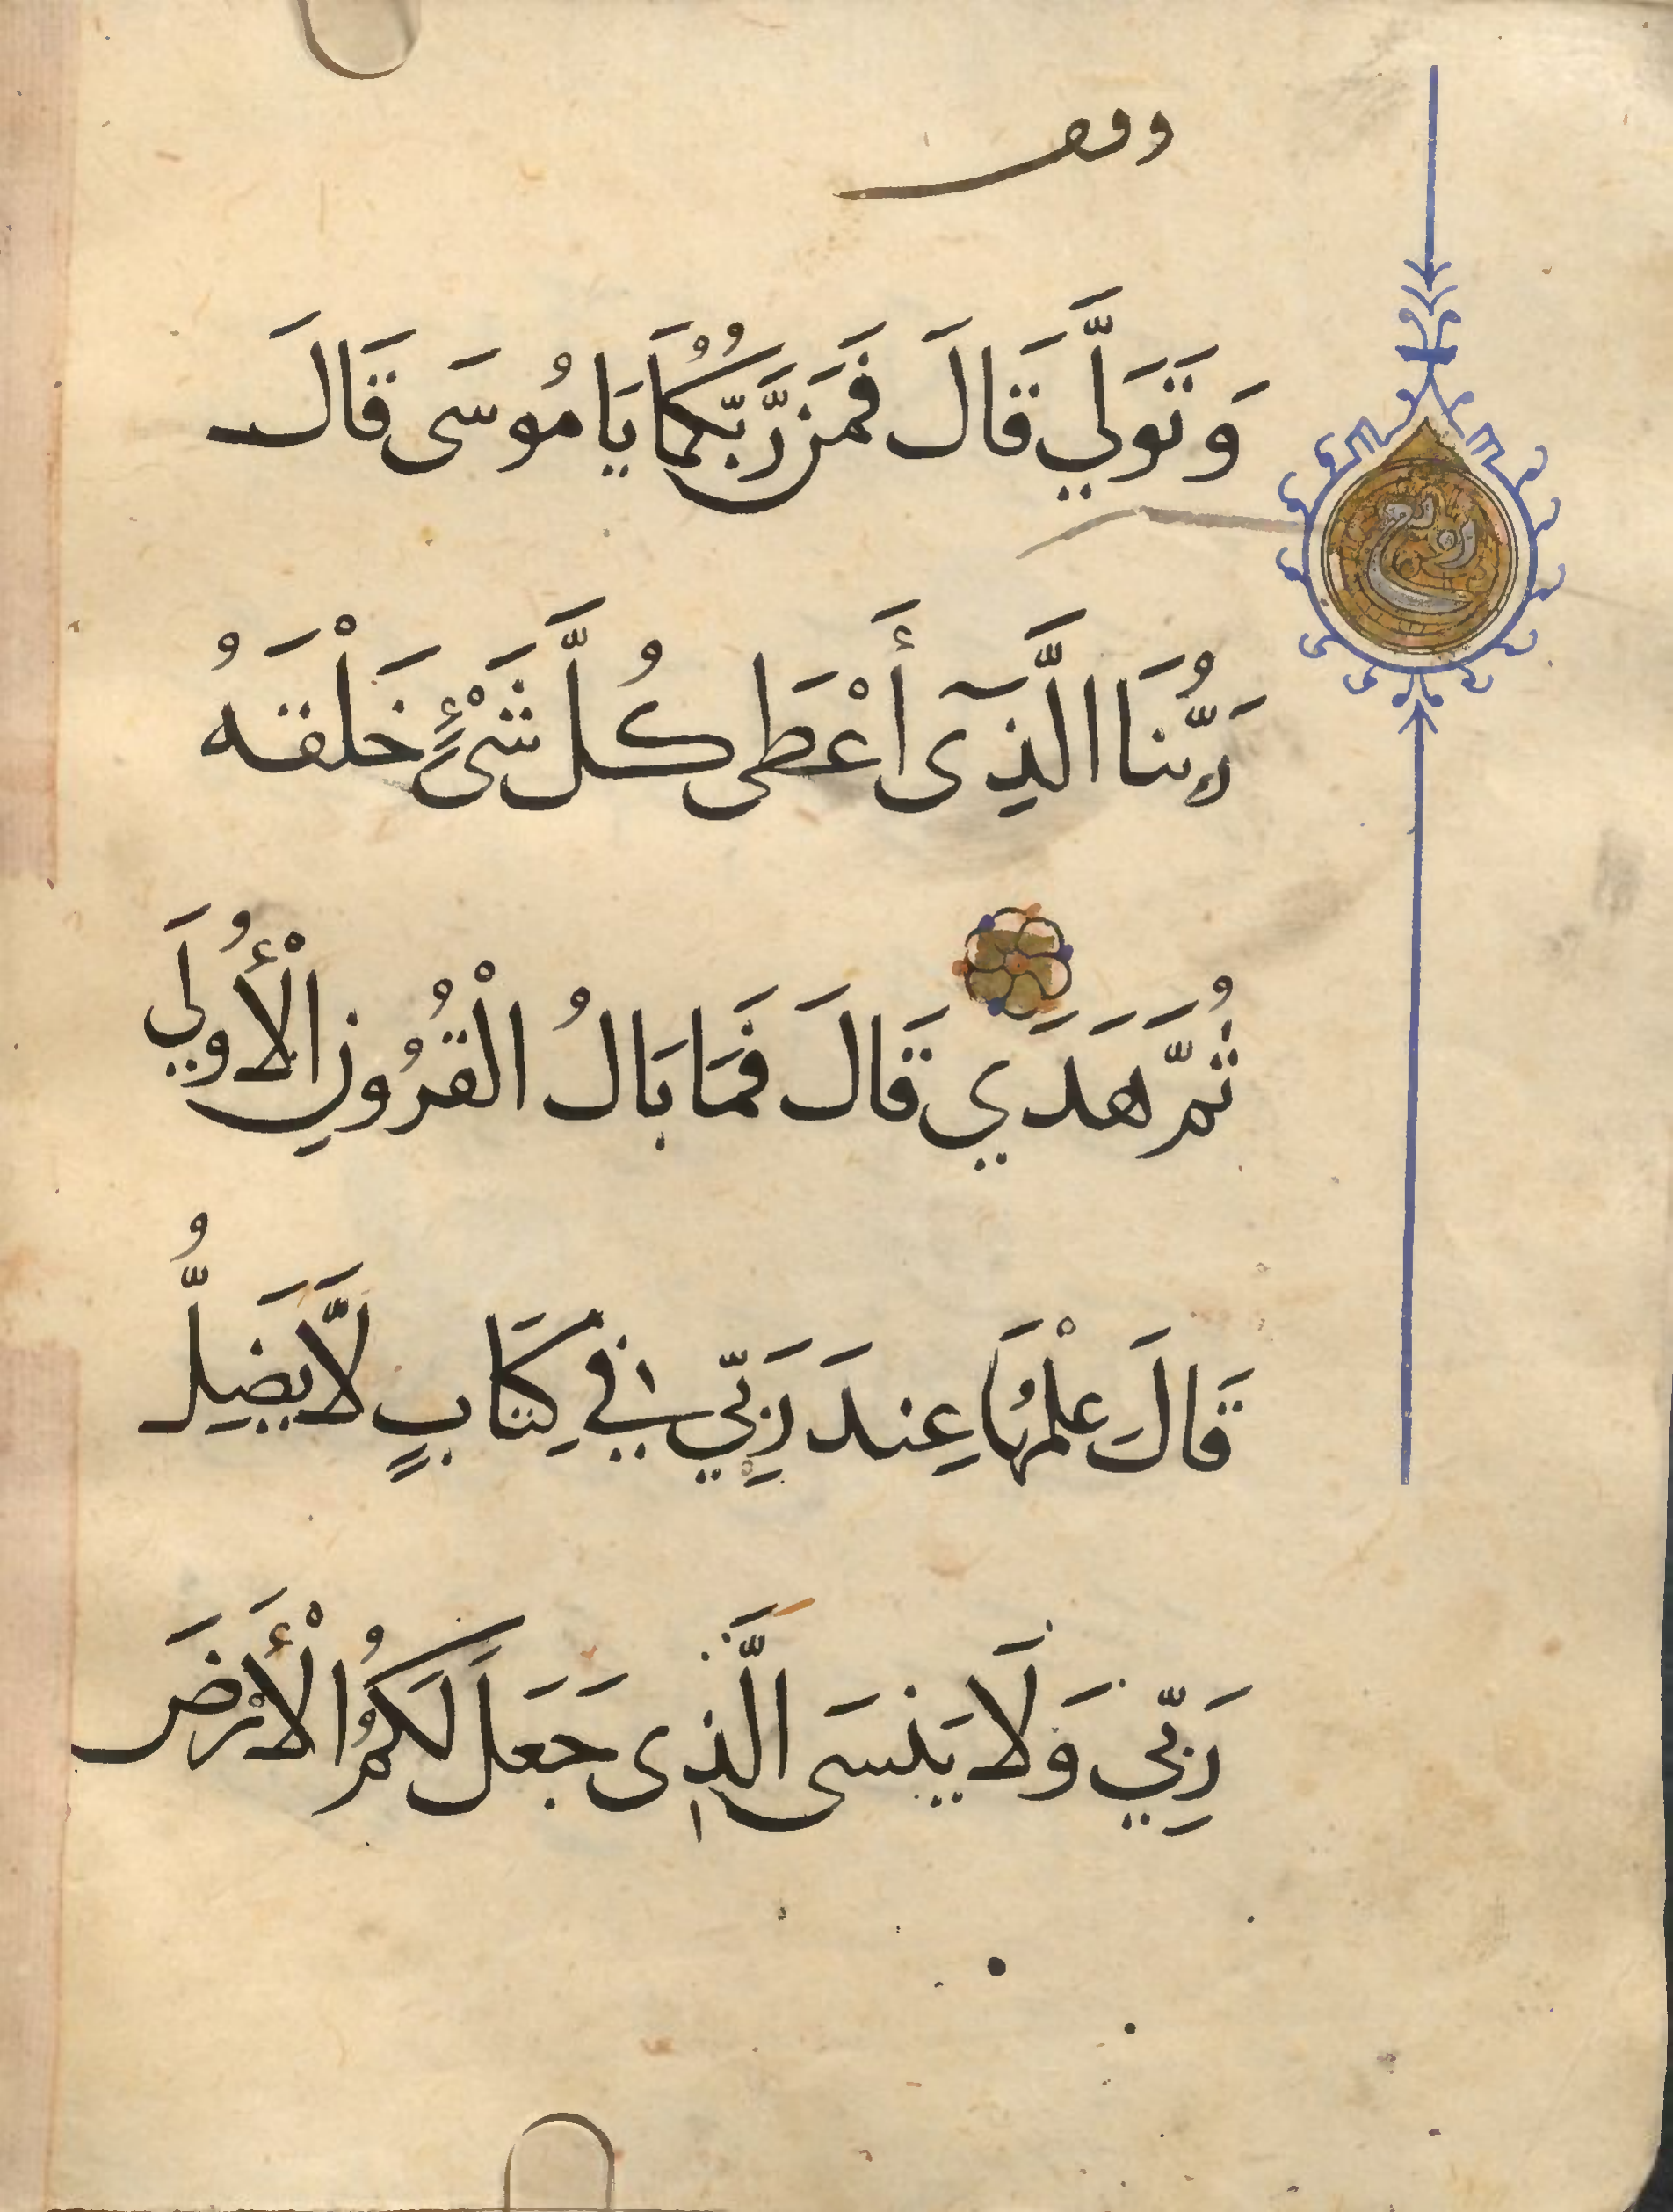 وقف
وَتَوَلَّي قَالَ فَمَن رَّبُّكُمَا يَا مُوسَى قَالَ
رَبُّنَا الَّذِىٓ أَعْطَى كُلَّ شَىْءٍ خَلْقَهُ
ثُمَّ هَدَي قَالَ فَمَا بَالُ الْقُرُونِ الْأُولَي
قَالَ عِلْمُهَا عِندَ رَبِّي فِي كِتَابٍ لَّا يَضِلُّ
رَبِّي وَلَا يَنسَى الَّذِى جَعَلَ لَكُمُ الْأَرْضَ